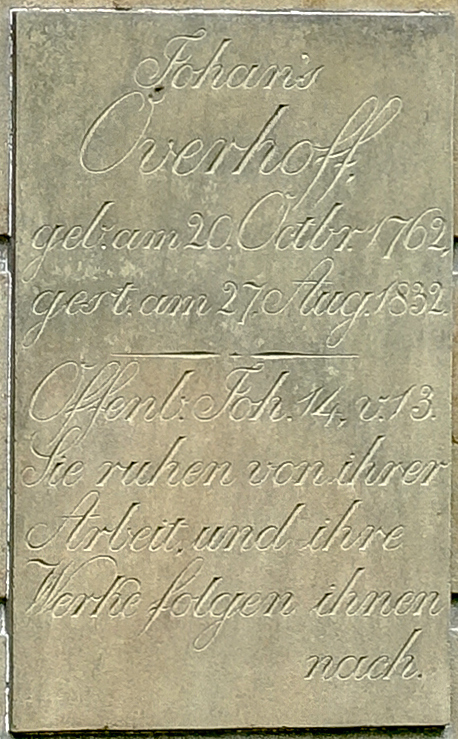 Johan's
Overhoff,
geb: am 20. Octbr. 1762,
gest. am 27. Aug. 1832.
Offenb: Joh. 14, v. 13.
Sie ruhen von ihrer
Arbeit, und ihre
Werke folgen ihnen
nach.